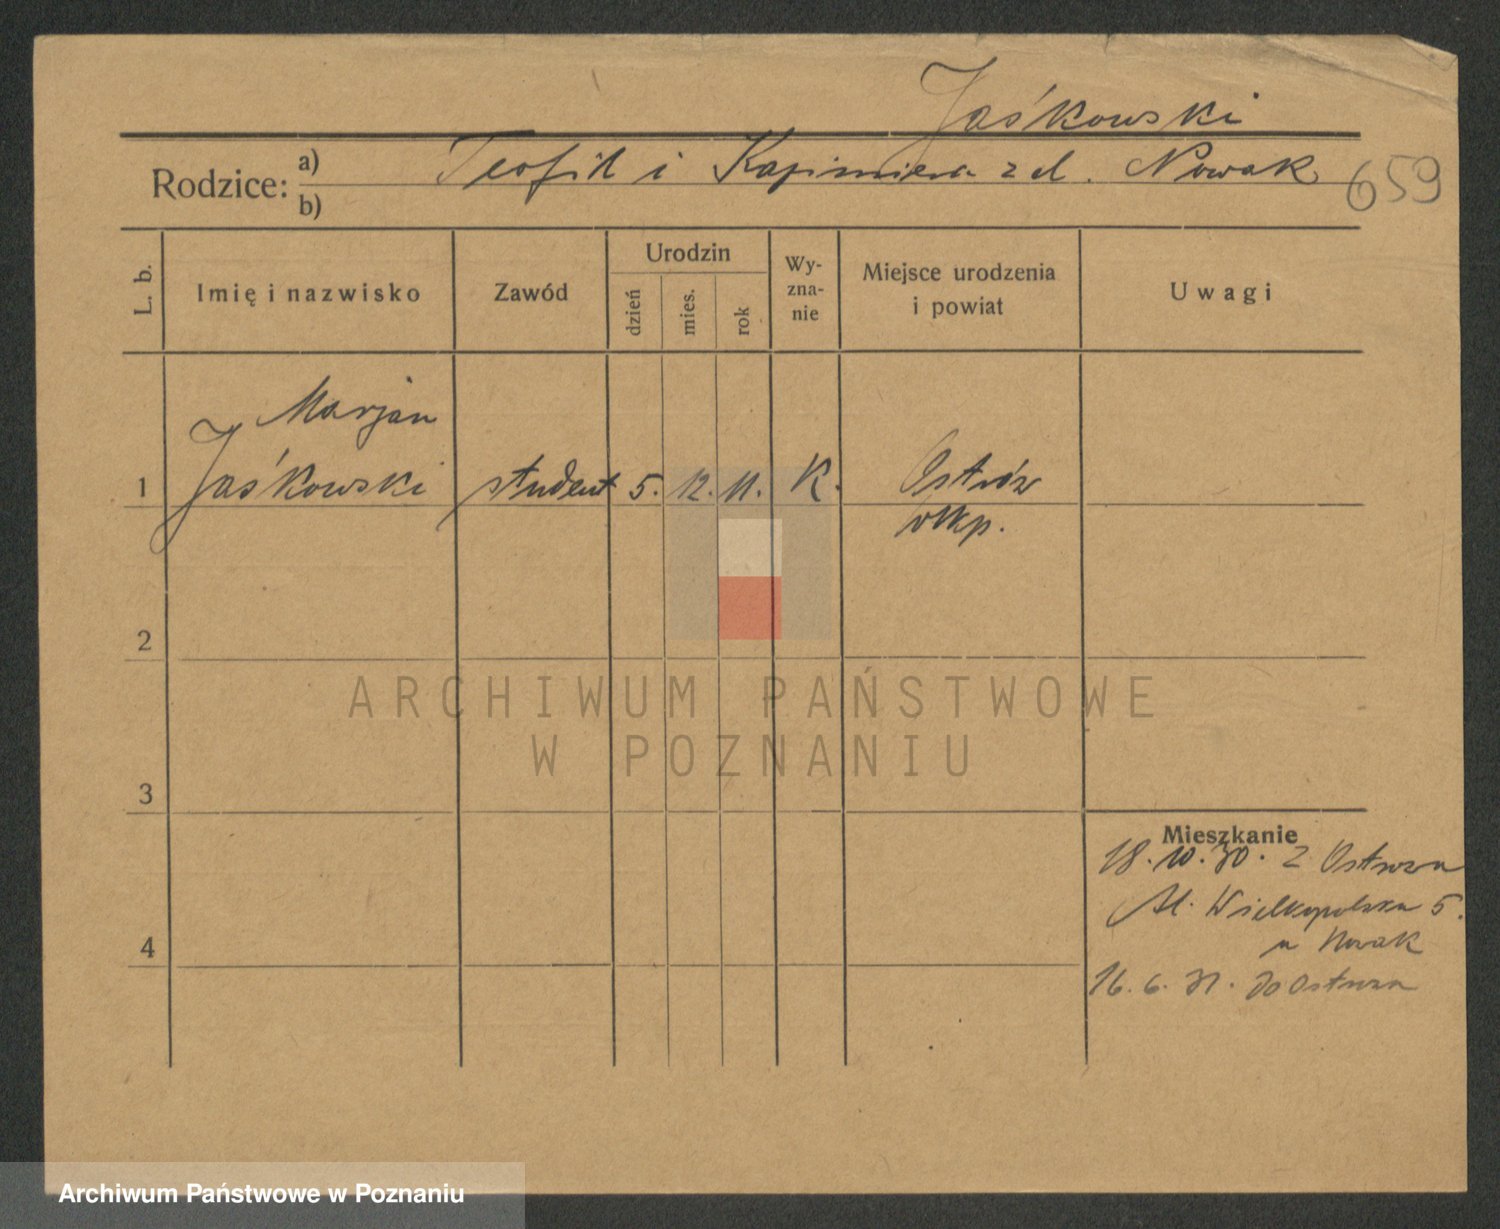 Jaśkowski
Rodzice: a) Teofil i Kazimiera z d. Nowak
b)
659
L. b.
Imię i nazwisko
Zawód
Urodzin
dzień
mies.
rok
Wy-
zna-
nie
Miejsce urodzenia
i powiat
Uwagi
Marjan
1 Jaśkowski student 5. 12. 11. K. Ostrów
wlkp.
2
ARCHIWUM PAŃSTWOWE
W POZNANIU
3
Mieszkanie
18.10.30. z Ostrowa
Al. Wielkopolska 5.
u Nowak
4
16.6.31. do Ostrowa
Archiwum Państwowe w Poznaniu